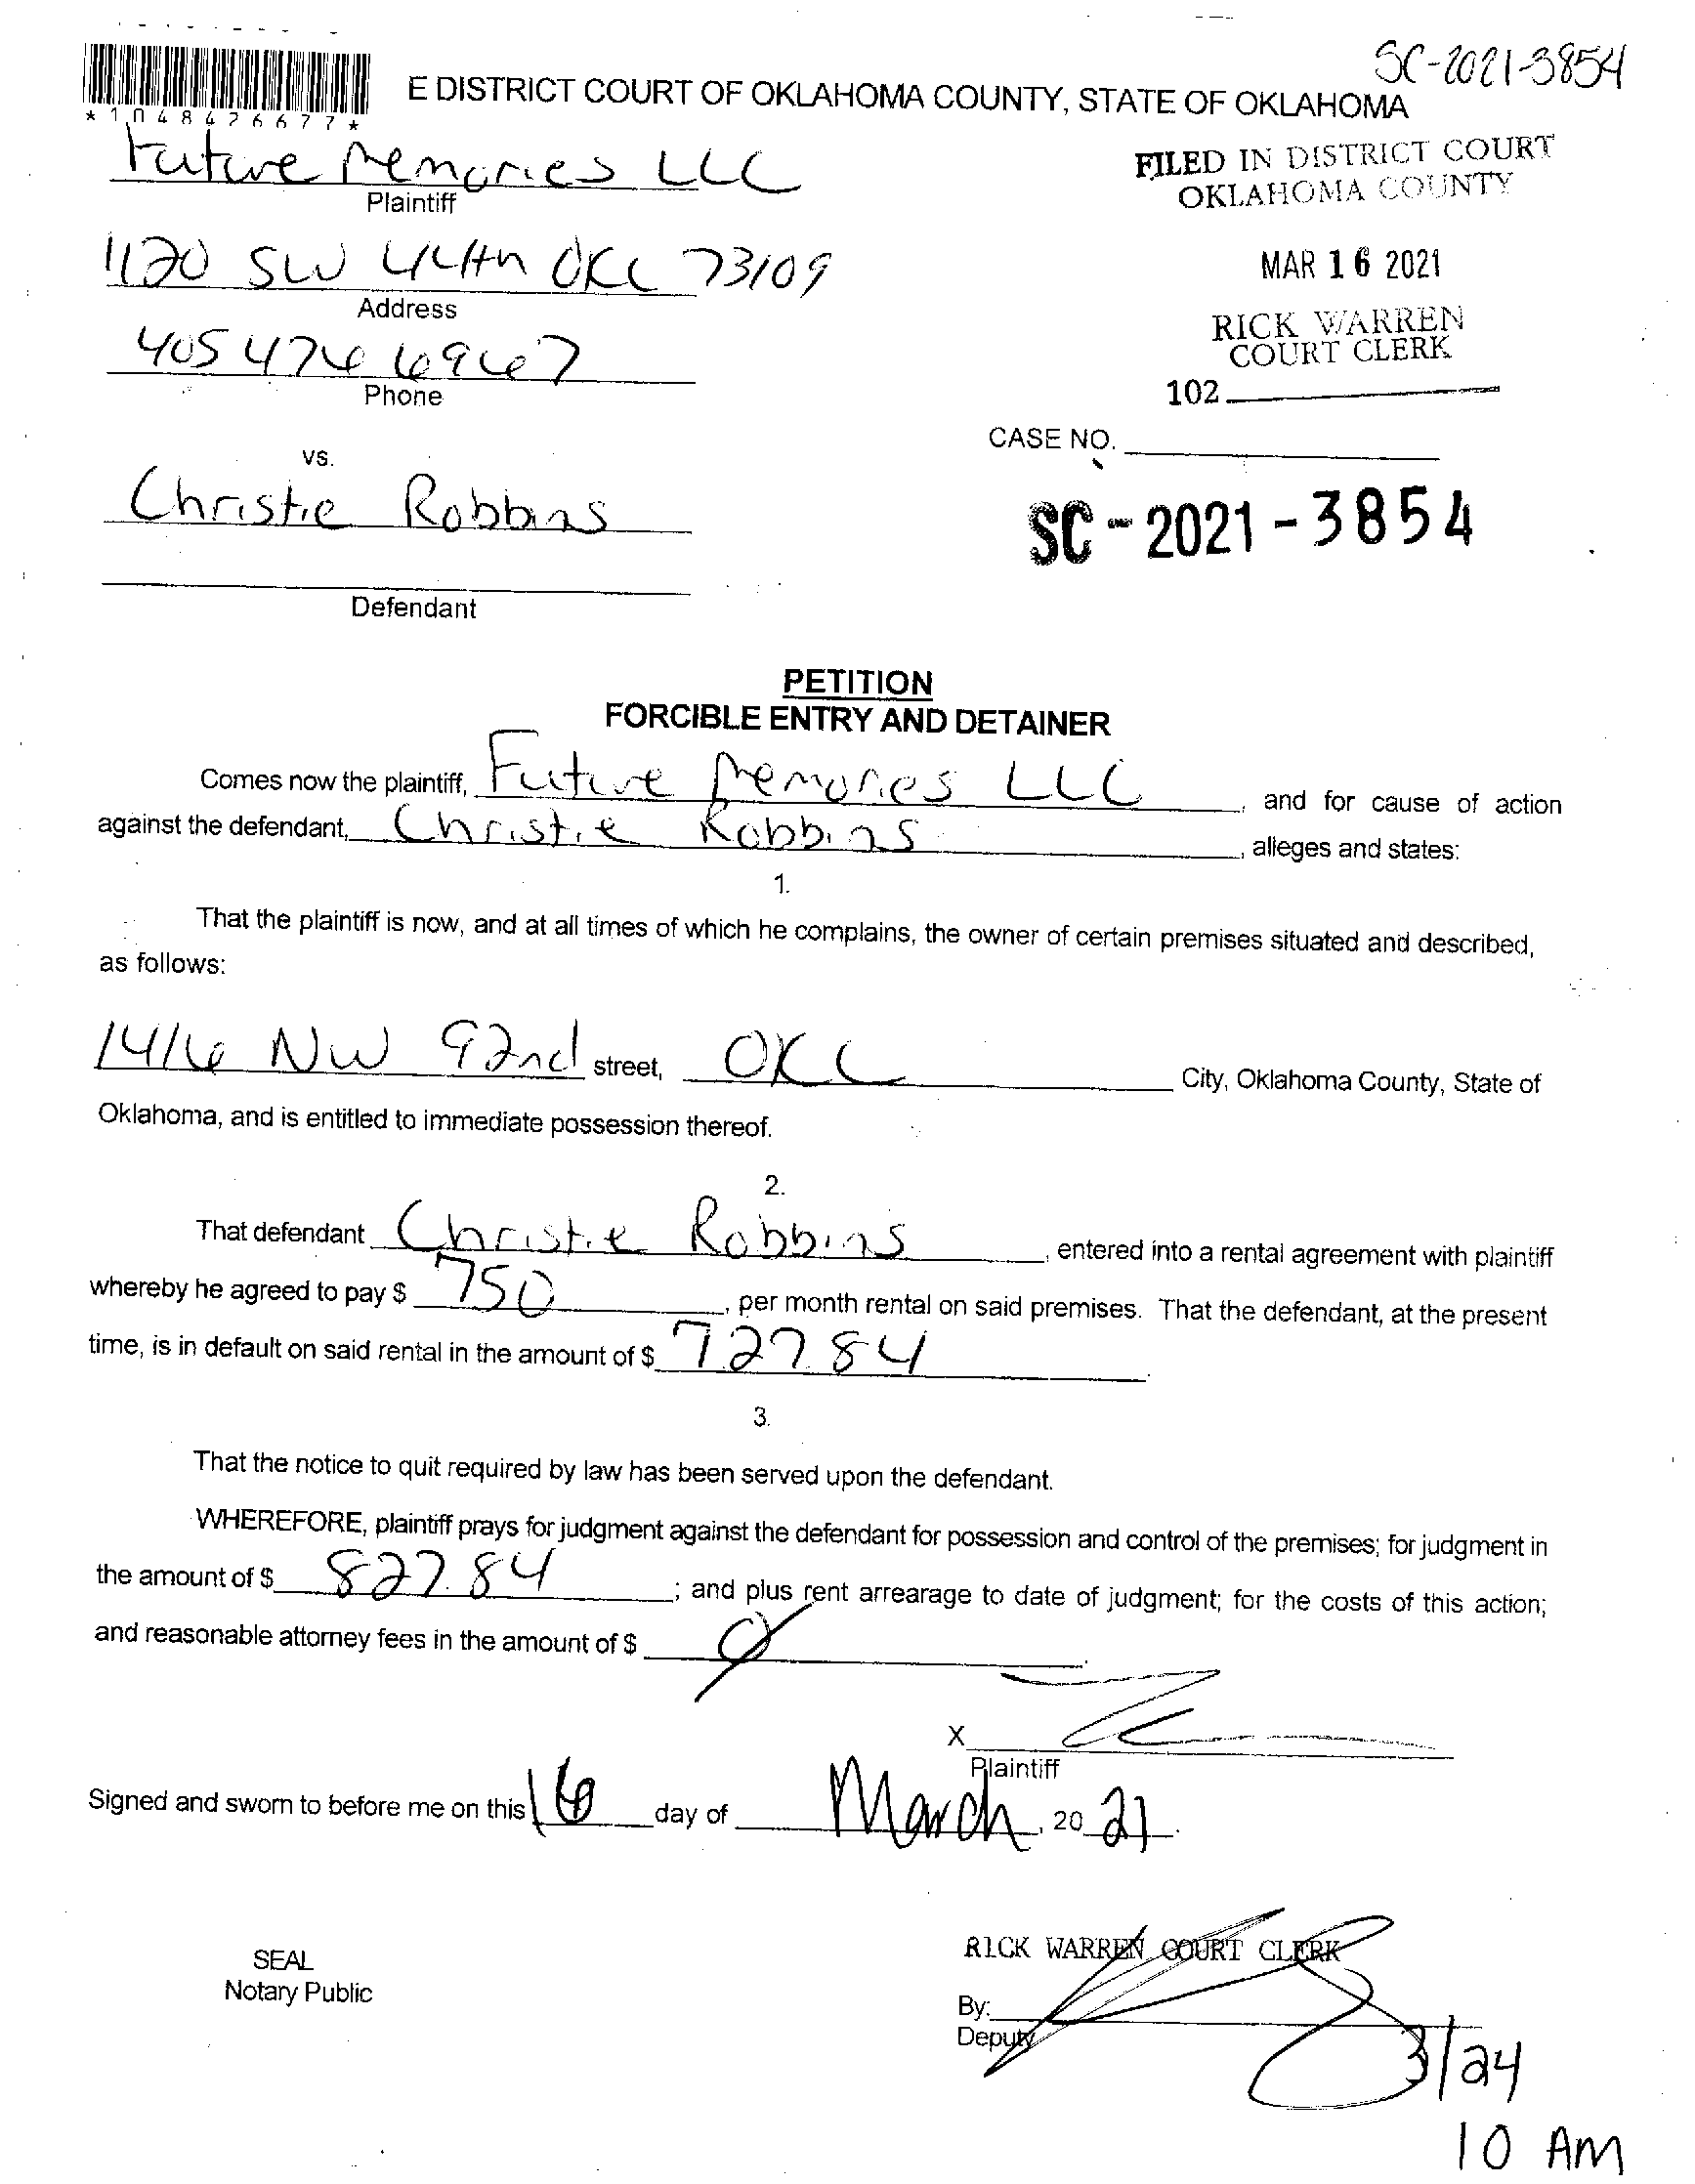 SC-2021-3854
E DISTRICT COURT OF OKLAHOMA COUNTY, STATE OF OKLAHOMA
*1048426677*
Future Memories LLC
Plaintiff
FILED IN DISTRICT COURT
OKLAHOMA COUNTY
1120 SW 44th OKC 73109
Address
MAR 16 2021
405 474 6967
Phone
RICK WARREN
COURT CLERK
102
CASE NO.
vs.
Christie Robbins
SC-2021-3854
Defendant
PETITION
FORCIBLE ENTRY AND DETAINER
Comes now the plaintiff, Future Memories LLC, and for cause of action
against the defendant, Christie Robbins, alleges and states:
1.
That the plaintiff is now, and at all times of which he complains, the owner of certain premises situated and described,
as follows:
1416 NW 92nd street, OKC City, Oklahoma County, State of
Oklahoma, and is entitled to immediate possession thereof.
2.
That defendant Christie Robbins, entered into a rental agreement with plaintiff
whereby he agreed to pay $ 750, per month rental on said premises. That the defendant, at the present
time, is in default on said rental in the amount of $ 727.84.
3.
That the notice to quit required by law has been served upon the defendant.
WHEREFORE, plaintiff prays for judgment against the defendant for possession and control of the premises; for judgment in
the amount of $ 827.84; and plus rent arrearage to date of judgment; for the costs of this action;
and reasonable attorney fees in the amount of $ 0.
X
Plaintiff
Signed and sworn to before me on this 16 day of March, 20 21.
SEAL
Notary Public
RICK WARREN COURT CLERK
By:
Deputy
3/24
10 AM